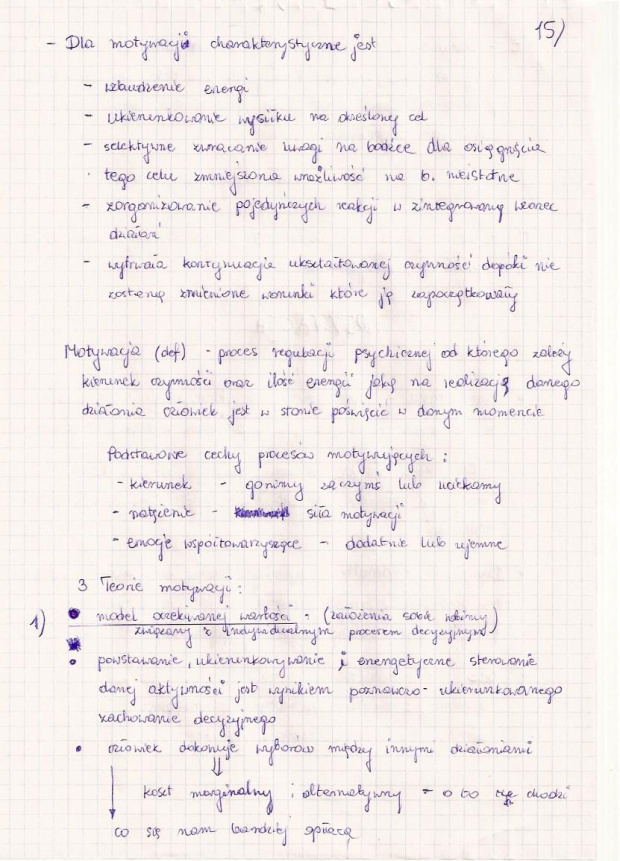 15/
- Dla motywacji charakterystyczne jest
- wzbudzenie energi
- ukierunkowanie wysiłku na określony cel
- selektywne zwracanie uwagi na bodźce dla osięgnięcia
tego celu zmniejszona wrażliwość na b. nieistotne
- zorganizowanie pojedyńczych reakcji w zintegrowany wzorzec
działań
- wytrwała kontynuacja ukształtowanej czynności dopóki nie
zostaną zmienione warunki które ją zapoczątkowały
Motywacja (def) - proces regulacji psychicznej od którego zależy
kierunek czynności oraz ilość energii jaką na realizację danego
działania człowiek jest w stanie poświęcić w danym momencie
Podstawowe cechy procesów motywujących :
- kierunek - gonimy za czymś lub uciekamy
- natężenie - siła motywacji
- emocje współtowarzyszące - dodatnie lub ujemne
3 Teorie motywacji :
1) model oczekiwanej wartości - (założenia sobie robimy)
związany z indywidualnym procesem decyzyjnym
• powstawanie, ukierunkowywanie i energetyczne sterowanie
danej aktywności jest wynikiem poznawczo - ukierunkowanego
zachowanie decyzyjnego
• człowiek dokonuje wyborów między innymi działaniami
koszt marginalny i alternatywny = o to się chodzi
co się nam bardziej opłaca